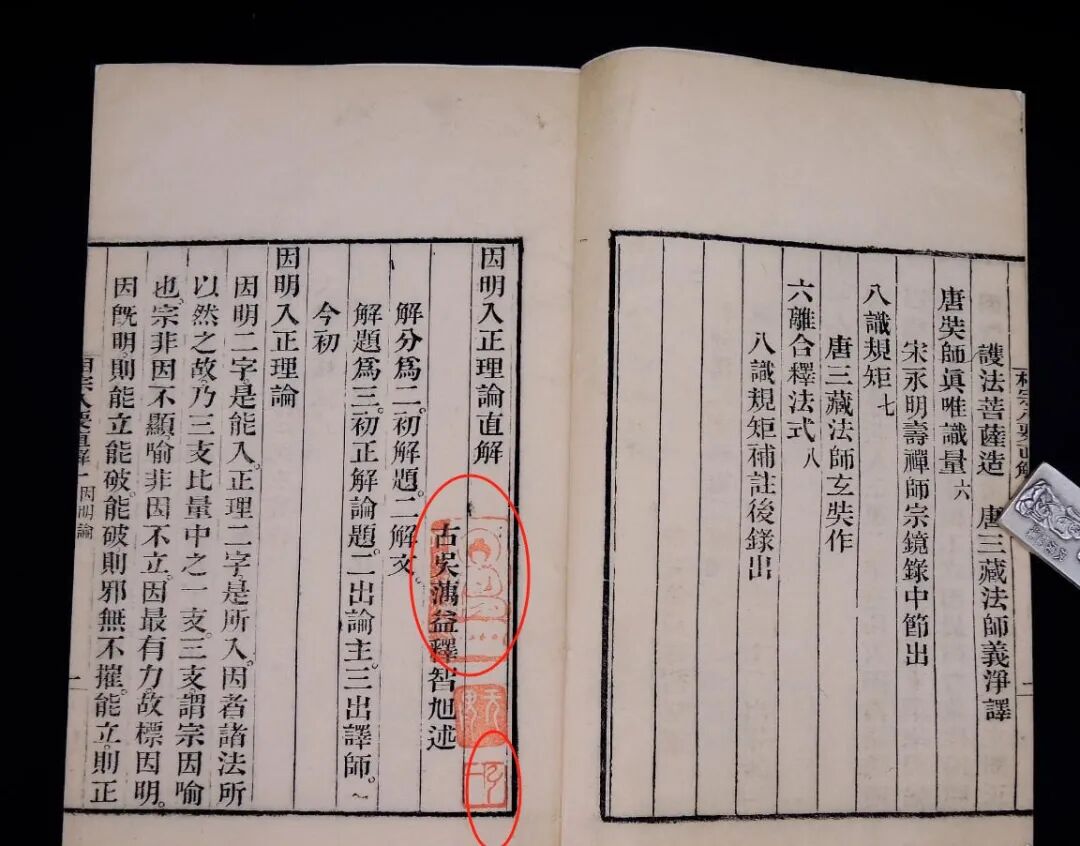 護法菩薩造　唐三藏法師義淨譯
唐奘師眞唯識量 六
宋永明壽禪師宗鏡錄中節出
八識規矩 七
唐三藏法師玄奘作
六離合釋法式 八
八識規矩補註後錄出
因明入正理論直解
古吳蕅益釋智旭述
解分爲二。初解題。二解文。
解題爲三。初正解論題。二出論主。三出譯師。
今初
因明入正理論
因明二字。是能入。正理二字。是所入。因者諸法所
以然之故。乃三支比量中之一支。三支。謂宗因喻
也。宗非因不顯。喻非因不立。因最有力。故標因明。
因旣明。則能立能破。能破則邪無不摧。能立。則正
相宗八要直解 一 因明論 一